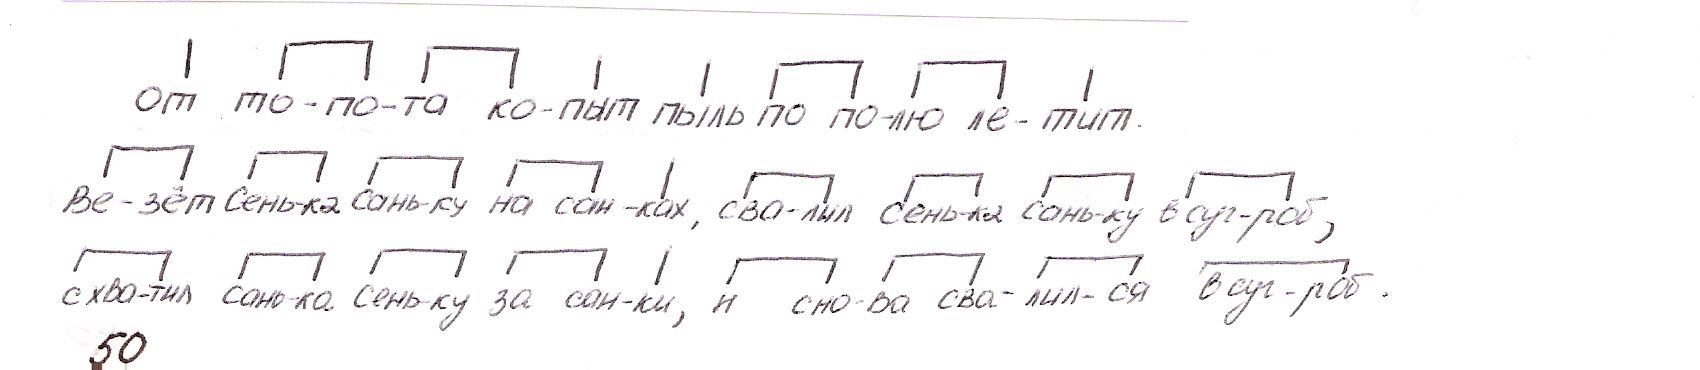 От то-по-та ко-пыт пыль по по-лю ле-тит.
Ве-зёт Сень-ка Сань-ку на сан-ках, сва-лил Сень-ка Сань-ку в суг-роб,
схва-тил Сань-ка Сень-ку за сан-ки, и сно-ва сва-лил-ся в суг-роб.
50